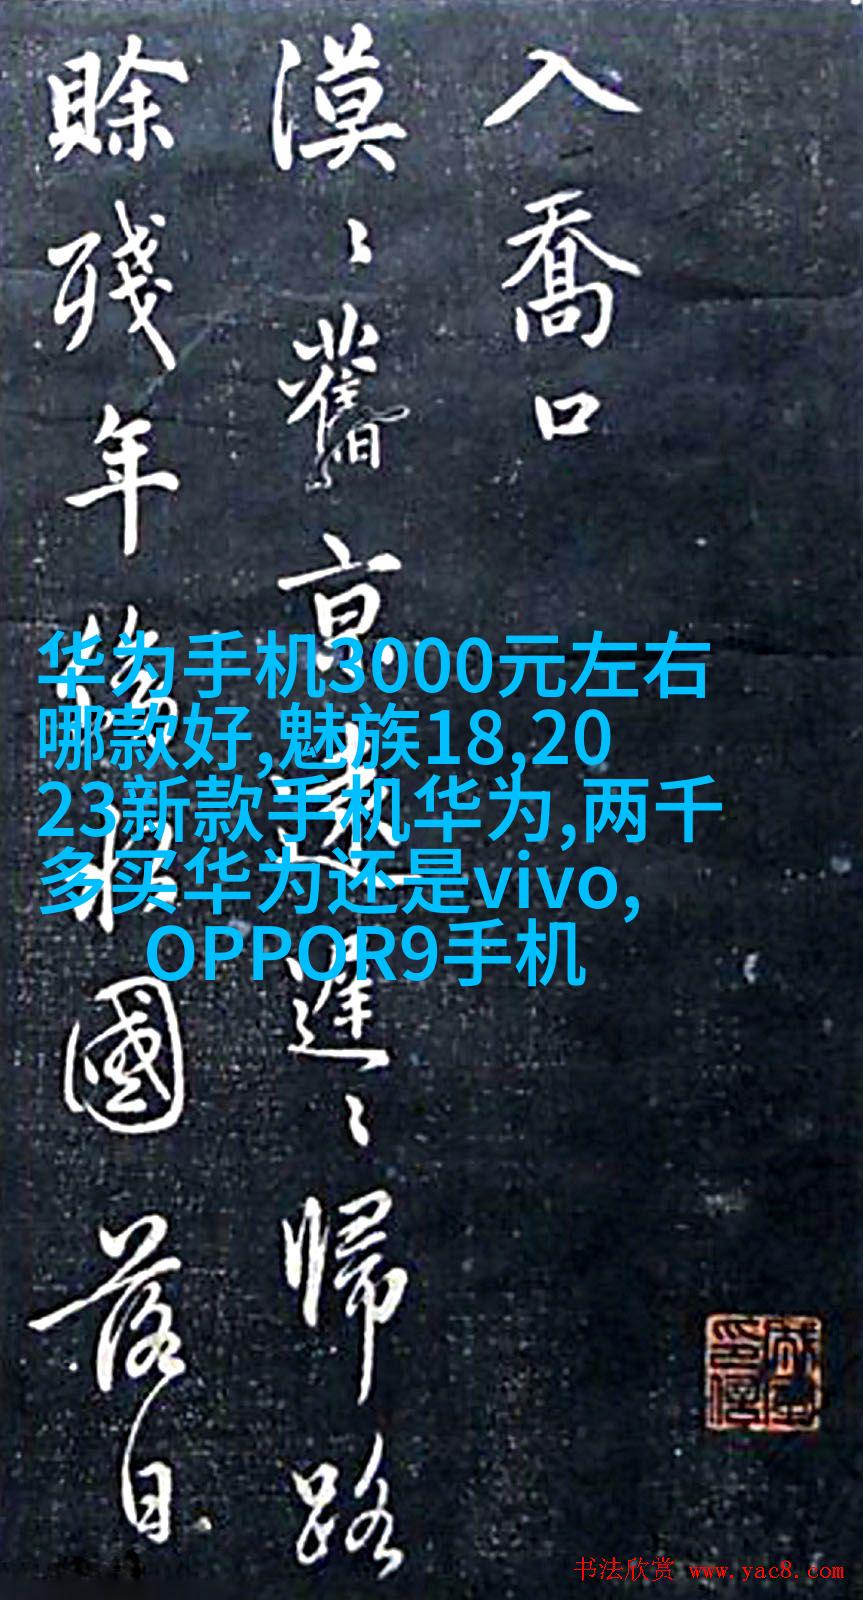 入喬口
漠〻舊京遠遲〻歸路
賒殘年傍水國落日
华为手机3000元左右
哪款好,魅族18,20
23新款手机华为,两千
多买华为还是vivo,
OPPOR9手机
书法欣赏 www.yac8.com